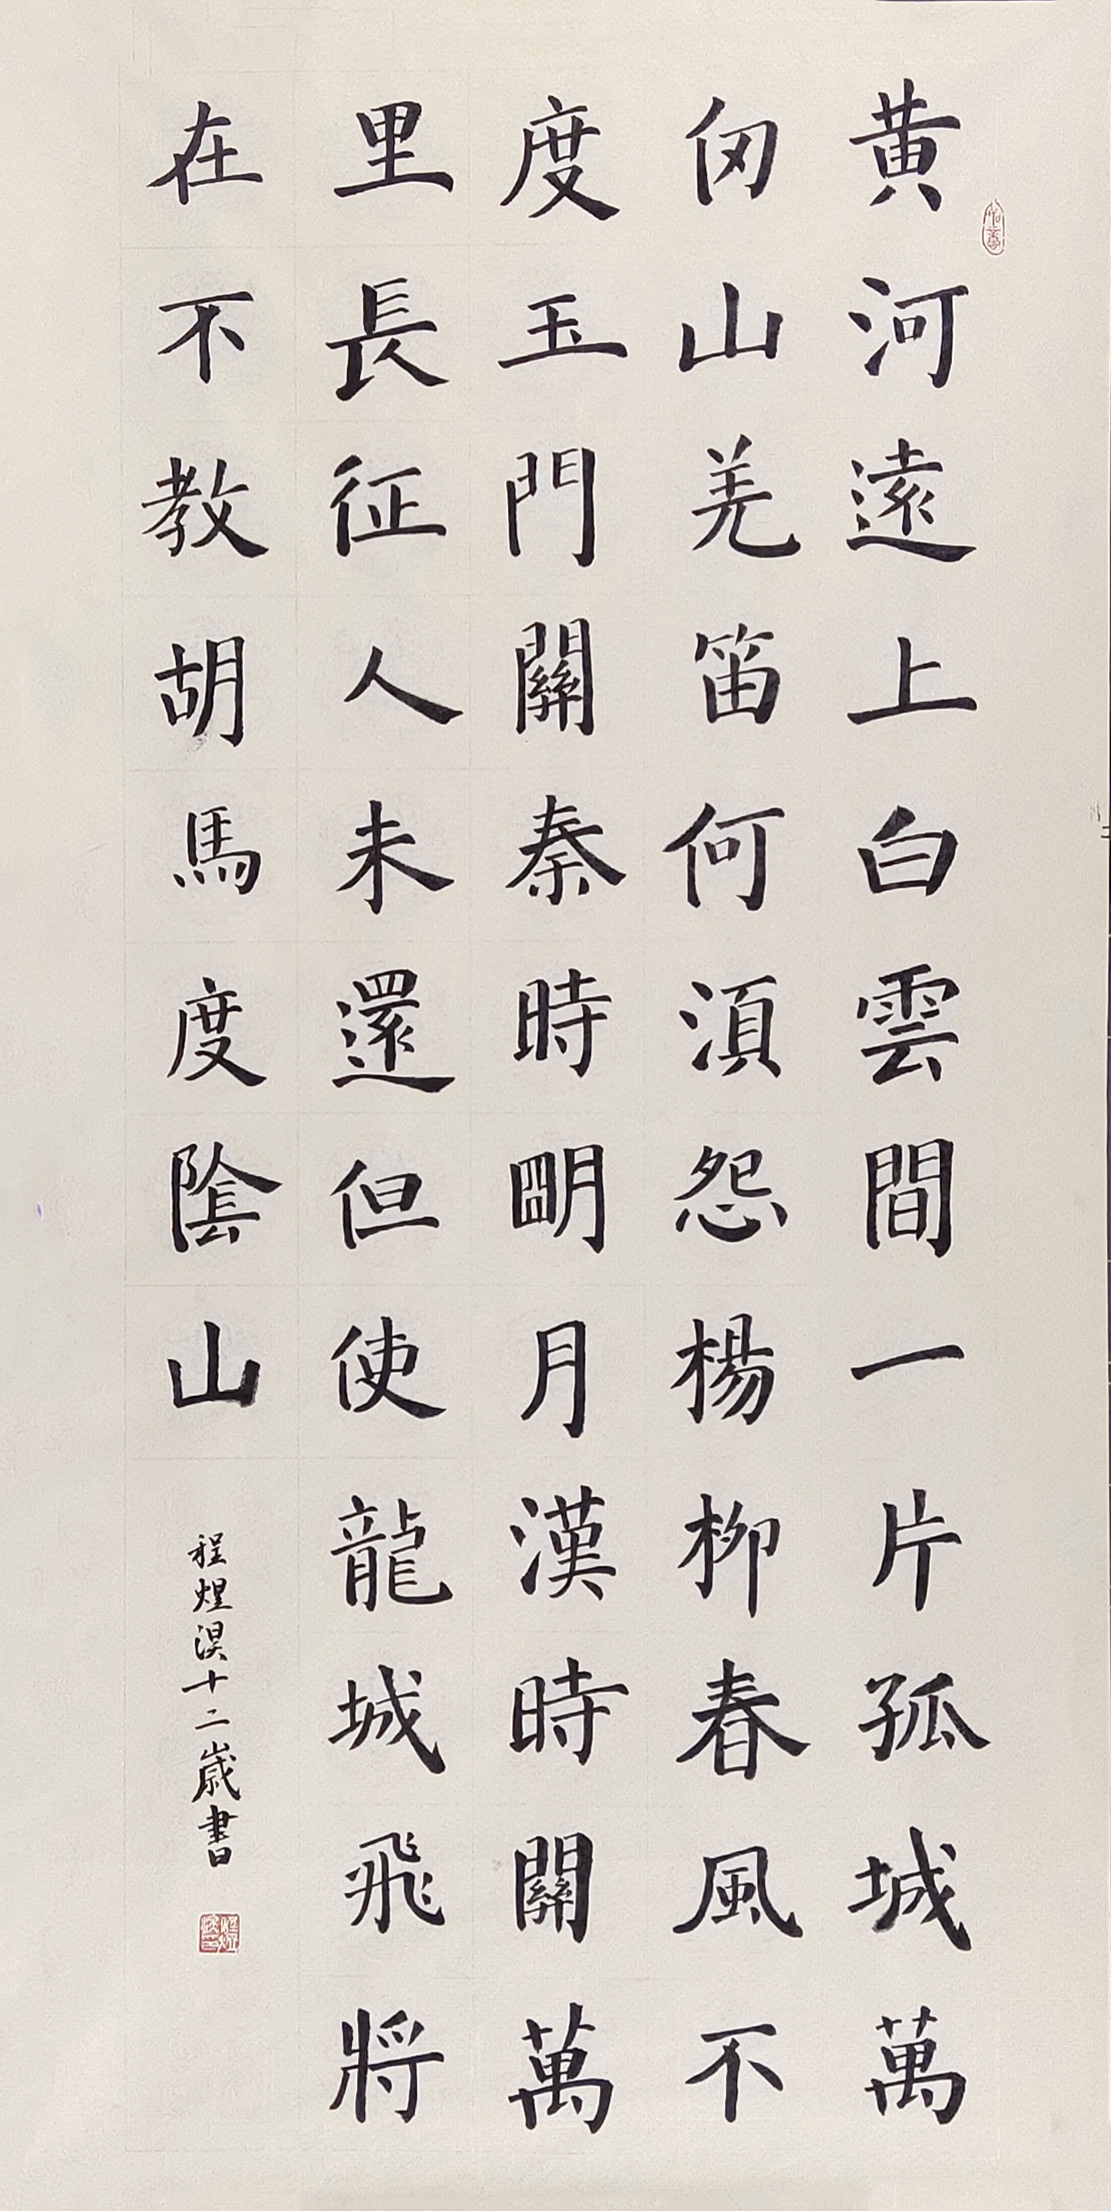 黄河遠上白雲間一片孤城萬
仞山羌笛何須怨楊柳春風不
度玉門關秦時明月漢時關萬
里長征人未還但使龍城飛將
在不教胡馬度陰山
程煌淏十二歲書